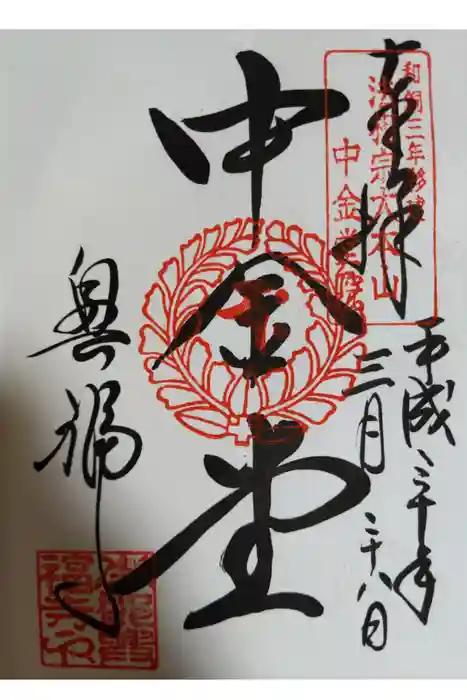 奉拝
和銅三年移建
法相宗大本山
中金堂
平成三十年
三月二十八日
中金堂
興福寺